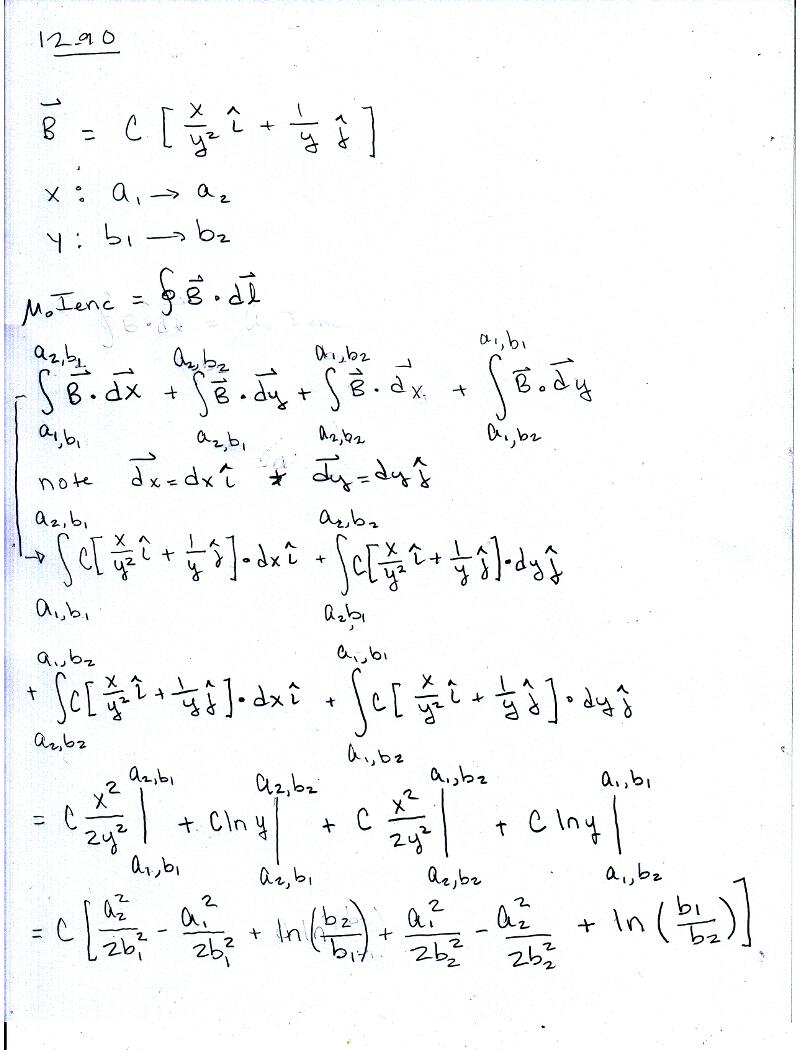 12.90
B⃗ = C [ x/y² î + 1/y ĵ ]
x : a₁ → a₂
y : b₁ → b₂
μ₀ Ienc = ∮ B⃗ · dl⃗
∫_{a₁,b₁}^{a₂,b₁} B⃗ · dx⃗ + ∫_{a₂,b₁}^{a₂,b₂} B⃗ · dy⃗ + ∫_{a₂,b₂}^{a₁,b₂} B⃗ · dx⃗ + ∫_{a₁,b₂}^{a₁,b₁} B⃗ · dy⃗
note dx⃗ = dx î & dy⃗ = dy ĵ
→ ∫_{a₁,b₁}^{a₂,b₁} C[ x/y² î + 1/y ĵ ] · dx î + ∫_{a₂,b₁}^{a₂,b₂} C[ x/y² î + 1/y ĵ ] · dy ĵ
+ ∫_{a₂,b₂}^{a₁,b₂} C[ x/y² î + 1/y ĵ ] · dx î + ∫_{a₁,b₂}^{a₁,b₁} C[ x/y² î + 1/y ĵ ] · dy ĵ
= C x²/2y² |_{a₁,b₁}^{a₂,b₁} + C ln y |_{a₂,b₁}^{a₂,b₂} + C x²/2y² |_{a₂,b₂}^{a₁,b₂} + C ln y |_{a₁,b₂}^{a₁,b₁}
= C [ a₂²/2b₁² - a₁²/2b₁² + ln(b₂/b₁) + a₁²/2b₂² - a₂²/2b₂² + ln(b₁/b₂) ]